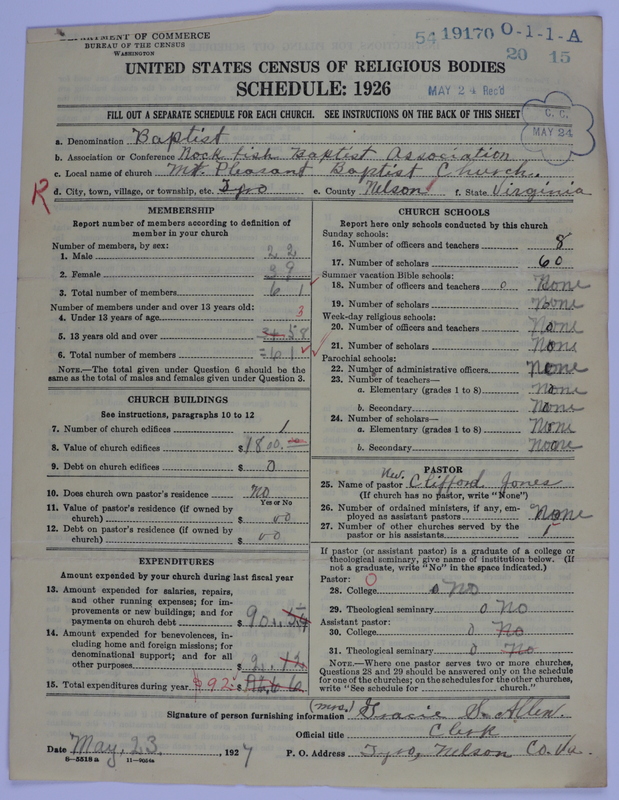 DEPARTMENT OF COMMERCE
BUREAU OF THE CENSUS
WASHINGTON
54 19170 O-1-1-A
20 15
UNITED STATES CENSUS OF RELIGIOUS BODIES
SCHEDULE: 1926
MAY 24 Rec'd
FILL OUT A SEPARATE SCHEDULE FOR EACH CHURCH. SEE INSTRUCTIONS ON THE BACK OF THIS SHEET
C. C.
MAY 24
a. Denomination Baptist
b. Association or Conference Rock fish Baptist Association
c. Local name of church Mt. Pleasant Baptist Church.
R
d. City, town, village, or township, etc. Tyro e. County Nelson f. State Virginia
MEMBERSHIP
Report number of members according to definition of
member in your church
Number of members, by sex:
1. Male 22
2. Female 39
3. Total number of members 61
Number of members under and over 13 years old:
4. Under 13 years of age 3
5. 13 years old and over 58
6. Total number of members =61
NOTE.—The total given under Question 6 should be the
same as the total of males and females given under Question 3.
CHURCH BUILDINGS
See instructions, paragraphs 10 to 12
7. Number of church edifices 1
8. Value of church edifices $1800.
9. Debt on church edifices $ 0
10. Does church own pastor's residence No
Yes or No
11. Value of pastor's residence (if owned by
church) $ 00
12. Debt on pastor's residence (if owned by
church) $ 00
EXPENDITURES
Amount expended by your church during last fiscal year
13. Amount expended for salaries, repairs,
and other running expenses; for im-
provements or new buildings; and for
payments on church debt $ 90.
14. Amount expended for benevolences, in-
cluding home and foreign missions; for
denominational support; and for all
other purposes $ 2. 12
15. Total expenditures during year $92
CHURCH SCHOOLS
Report here only schools conducted by this church
Sunday schools:
16. Number of officers and teachers 8
17. Number of scholars 60
Summer vacation Bible schools:
18. Number of officers and teachers 0 None
19. Number of scholars None
Week-day religious schools:
20. Number of officers and teachers None
21. Number of scholars None
Parochial schools:
22. Number of administrative officers None
23. Number of teachers—
a. Elementary (grades 1 to 8) None
b. Secondary None
24. Number of scholars—
a. Elementary (grades 1 to 8) None
b. Secondary None
PASTOR
25. Name of pastor Rev. Clifford Jones
(If church has no pastor, write "None")
26. Number of ordained ministers, if any, em-
ployed as assistant pastors None
27. Number of other churches served by the
pastor or his assistants 1
If pastor (or assistant pastor) is a graduate of a college or
theological seminary, give name of institution below. (If
not a graduate, write "No" in the space indicated.)
Pastor: O
28. College o No
29. Theological seminary o No
Assistant pastor:
30. College o No
31. Theological seminary o No
NOTE.—Where one pastor serves two or more churches,
Questions 28 and 29 should be answered only on the schedule
for one of the churches; on the schedules for the other churches,
write "See schedule for church."
Signature of person furnishing information (Mrs.) Gracie S. Allen.
Official title Clerk
Date May, 23, 1927 P. O. Address Tyro, Nelson Co. Va.
8—5518 a 11—9054a